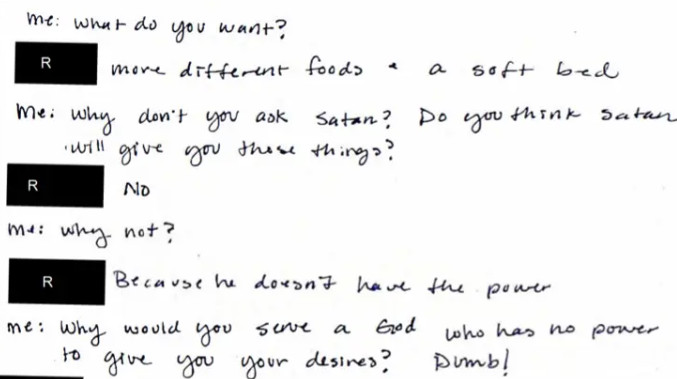 me: what do you want?
R more different foods & a soft bed
Me: why don't you ask Satan? Do you think Satan
will give you these things?
R No
Me: why not?
R Because he doesn't have the power
me: Why would you serve a God who has no power
to give you your desires? Dumb!